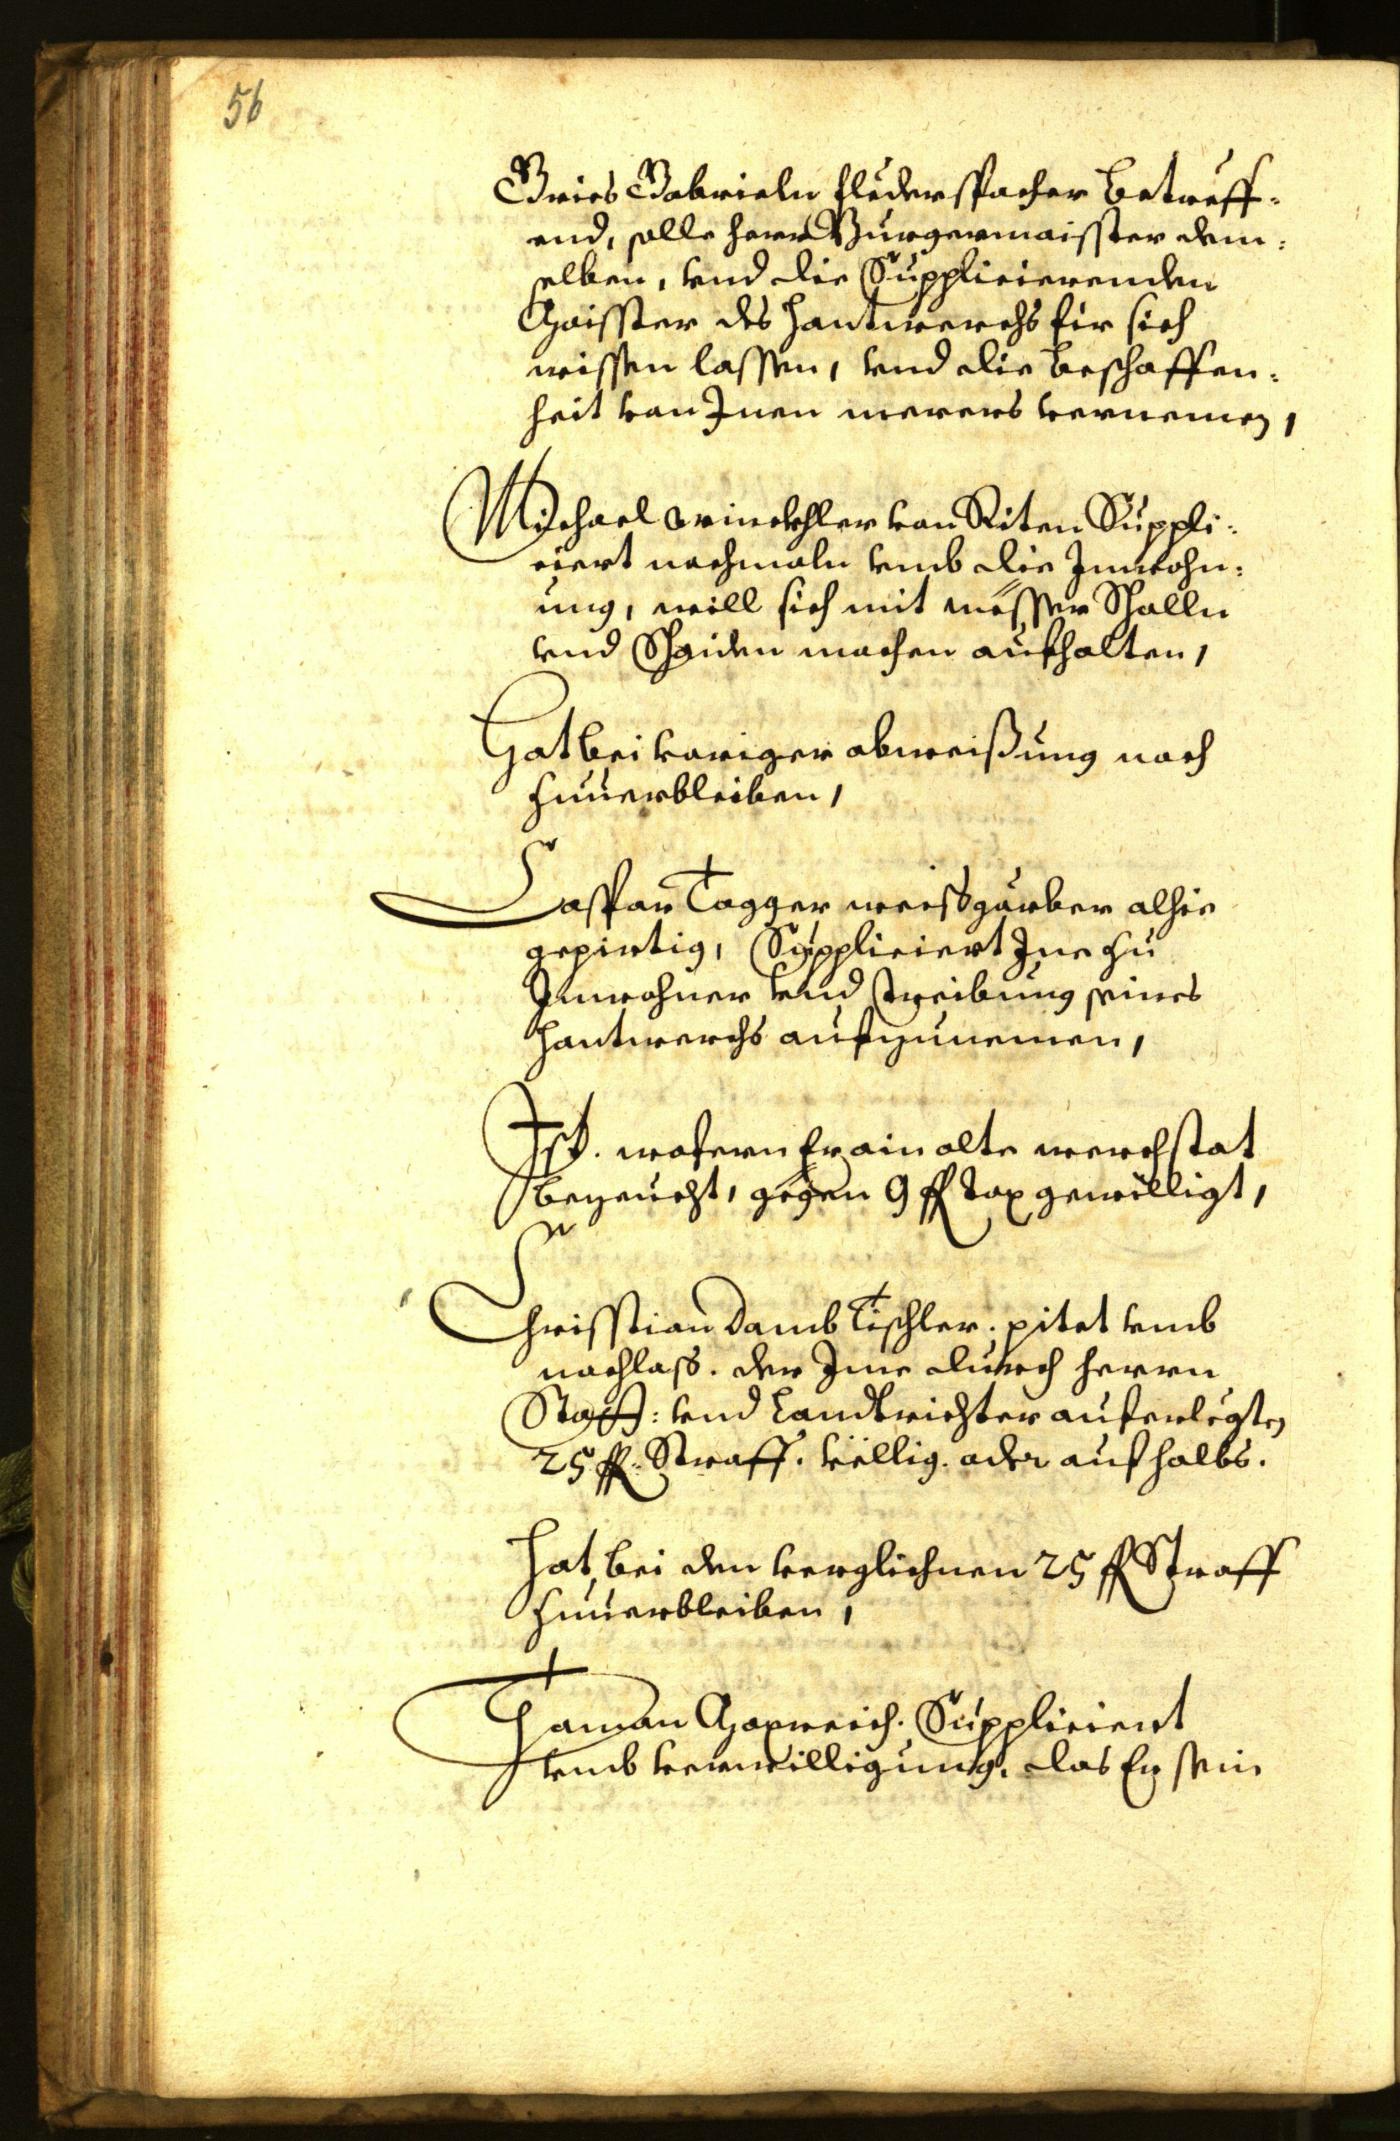 56
Gries Gabrieln Fluderspacher betreff-
end, solle herr Burgermaisster dem-
selben, vnd die Supplicierenden
Maisster des Hantwerchs für sich
wissen lassen, vnd die beschaffen-
heit von Inen merers vernemen,
Michael von Riten Suppli-
ciert nochmaln vmb die Innwohn-
ung, will sich mit messer Schalln
vnd Schaiden machen aufhalten,
Hat bei voriger abweißung noch
zuuerbleiben,
Caspar Tagger weissgärber alhie
gepirtig, Suppliciert Ine zu
Innwohner vnd treibung seines
Hantwerchs aufzunemen,
Ist. wofern Er ain alte werchstat
bezeucht, gegen 9 fl tax gewilligt,
Chrisstian Damb Tischler. pitet vmb
nachlass. der Ime durch herrn
Statt: vnd Landtrichter auferlegten
25 fl: Straff. völlig. oder auf halbs.
Hat bei den verglichnen 25 fl Straff
zuuerbleiben,
Thaman Suppliciert
vmb verwilligung, das Er sein